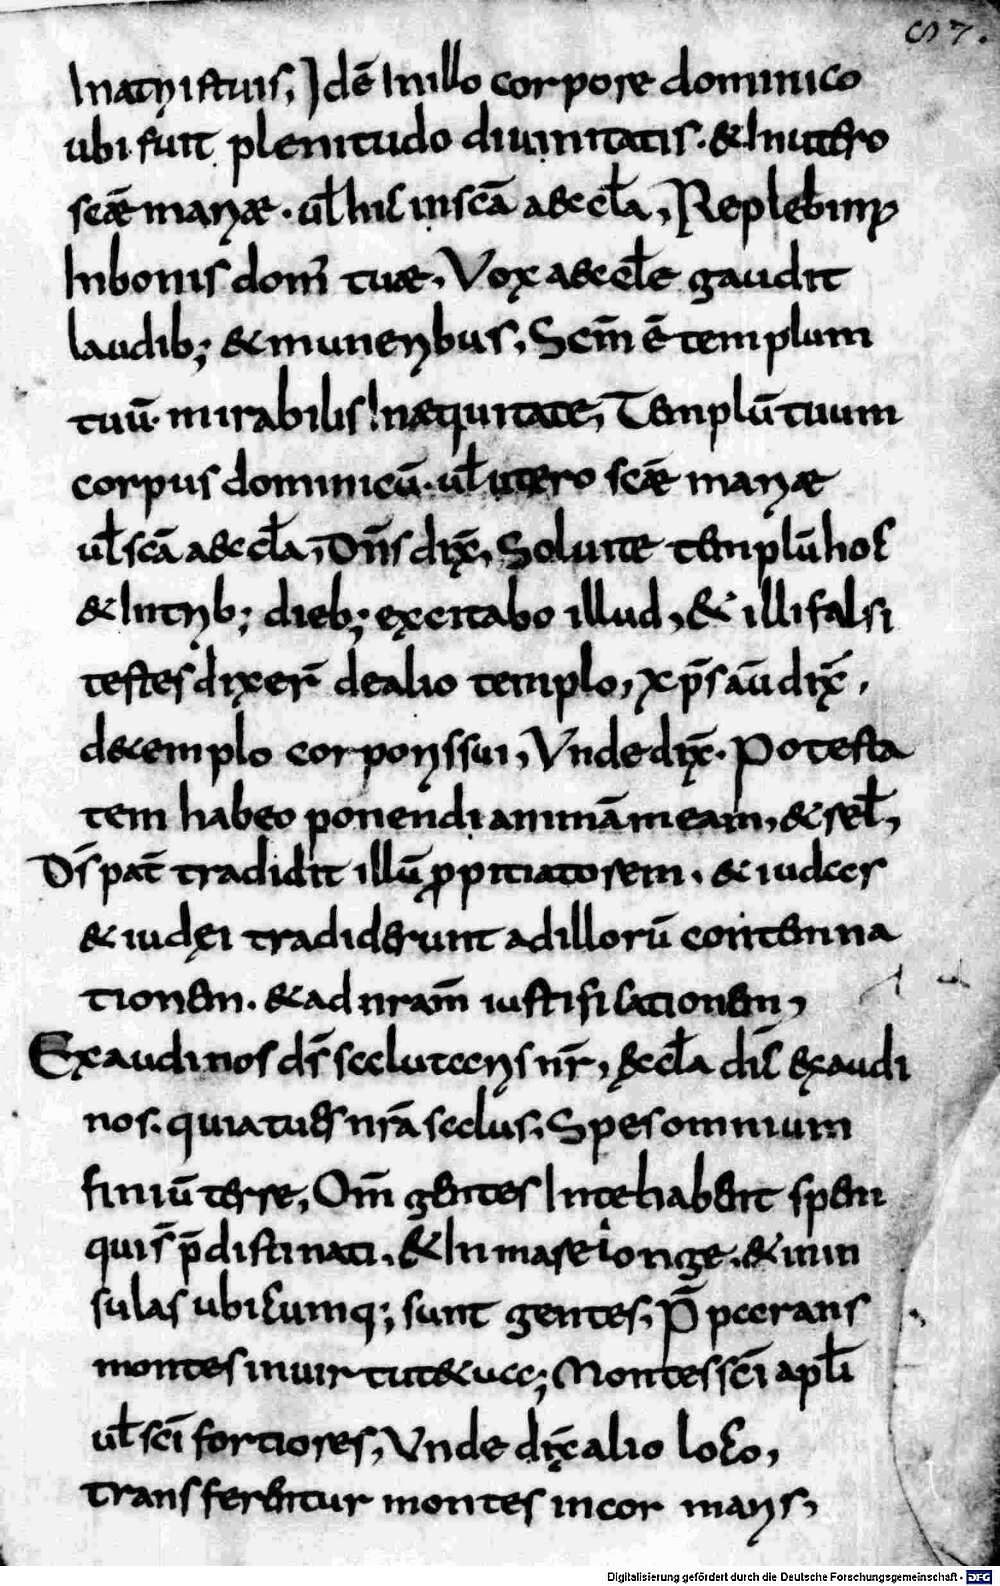 57.
In atriis tuis, Idē In illo corpore dominico
ubi fuit plenitudo diuinitatis. & In utero
scǣ mariæ. ul̄ hic in scā aeccl̄a, Replebimur
In bonis dom̄ tuæ, Vox aeccl̄e gaudit
laudib; & muneribus, Scm̄ ē templum
tuū. mirabilis In æquitate, Templū tuum
corpus dominicū. ul̄ utero scǣ mariæ
ul̄ scā aeccl̄a, Dn̄s dix̄, Soluite templū hoc
& In trib; dieb; excitabo illud, & illi falsi
testes dixer̄ de alio templo, xp̄s aū dix̄,
de templo corporis sui, Vnde dix̄. Potesta
tem habeo ponendi animā meam, & rel̄,
Ds̄ pat̄ tradidit illū propitiatorem, & iudas
& iudęi tradiderunt ad illorū contemna
tionem. & ad nram̄ iustificationem,
Exaudi nos ds̄ salutaris nr̄, æccl̄a dic̄ exaudi
nos. quia tu es nrā salus, Spes omnium
finiū terre, Om̄ gentes In te habent spem
qui s̄ p̄distinati, & In mare longe, & in in
sulas ubicumq; sunt gentes, P̄parans
montes in uirtute tua; Montes sc̄i apl̄i
ul̄ sc̄i fortiores, Vnde dix̄ alio loco,
transferentur montes in cor maris,
Digitalisierung gefördert durch die Deutsche Forschungsgemeinschaft - DFG